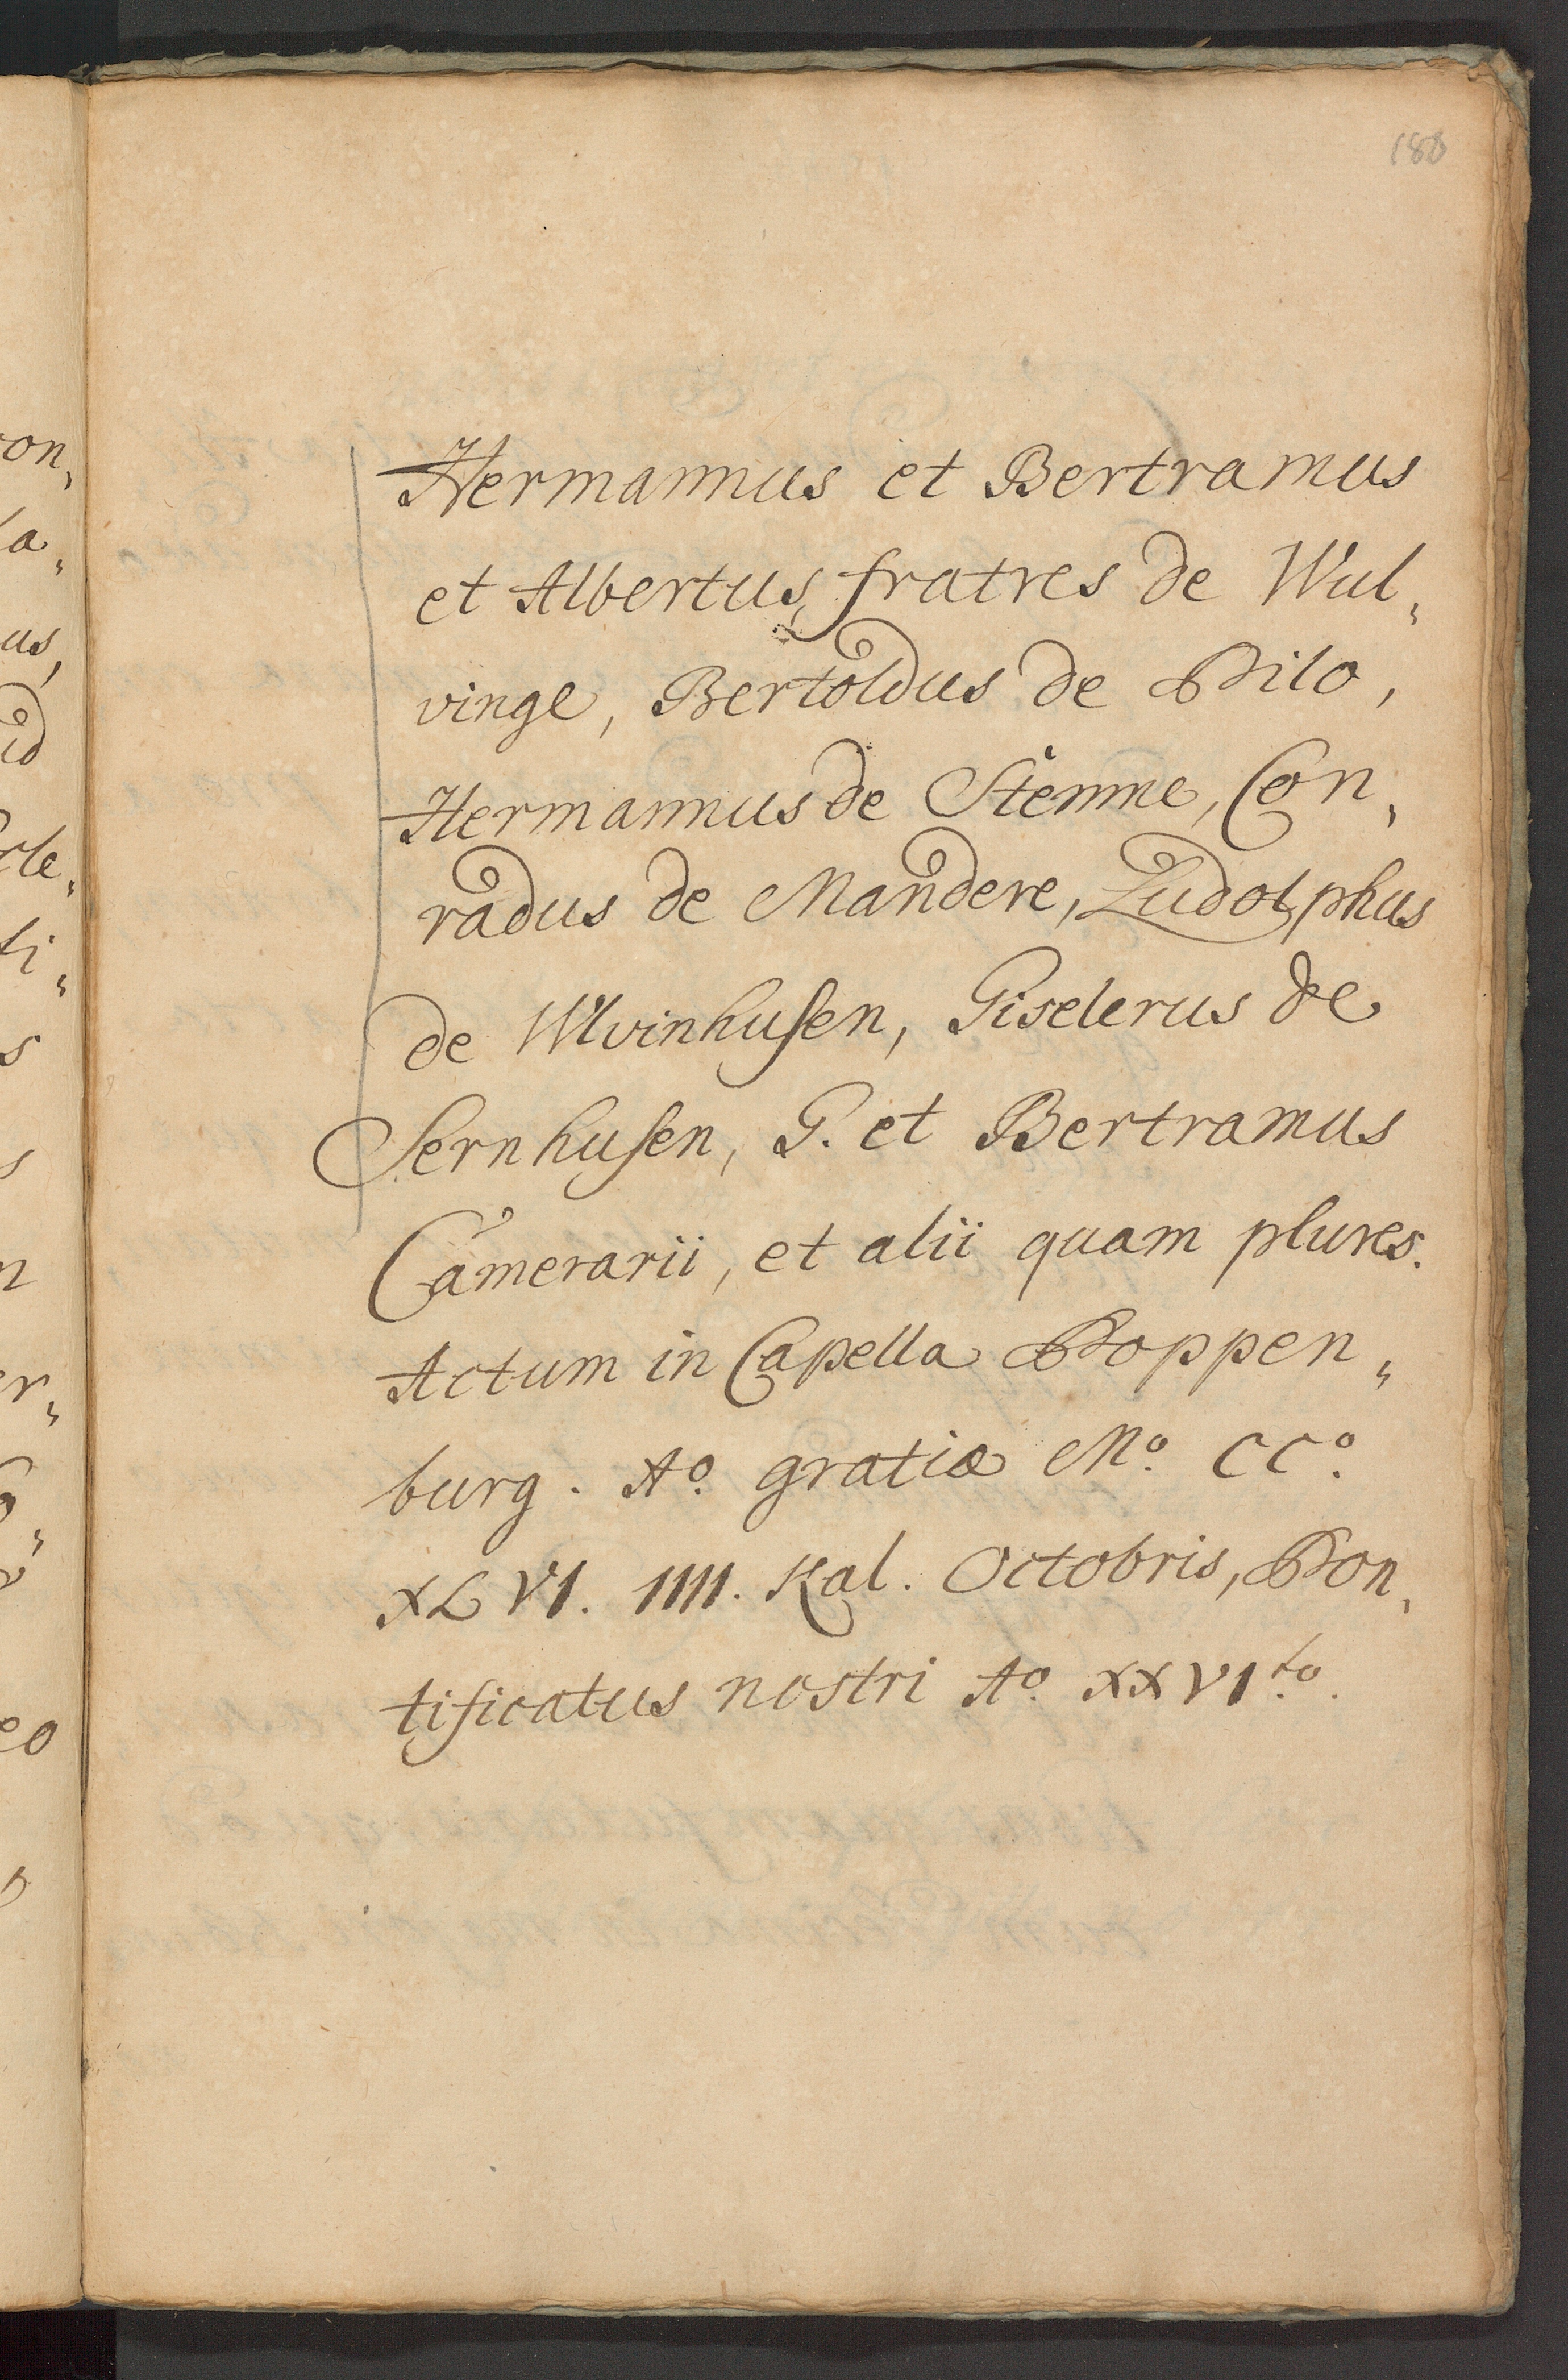 188
Hermannus et Bertramus
et Albertus fratres de Wul„
vinge, Bertoldus de Pilo,
Hermannus de Stemne, Con„
radus de Mandere, Ludolphus
de Wlvinhusen, Giselerus de
Sernhusen, G. et Bertramus
Camerarii, et alii quam plures.
Actum in Capella Poppen„
burg. Ao. gratiæ Mo. CCo.
XLVI. IIII. Kal. Octobris, Pon„
tificatus nostri Ao. XXVIto.